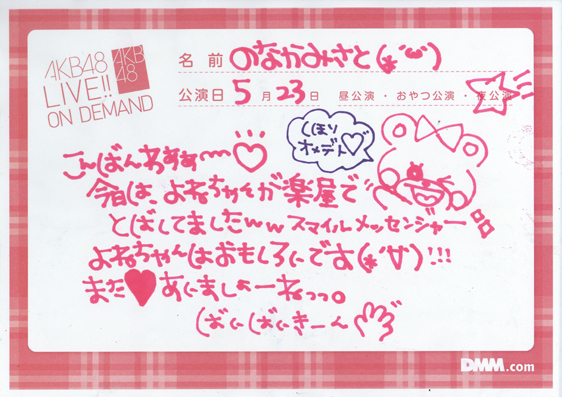 AKB48
LIVE!!
ON DEMAND
AKB
48
名前 のなかみさと(*´ω`)
公演日 5月23日 昼公演・おやつ公演・夜公演
しほり
オメデト♡
こんばんわぁぁ〜♡
今日は、よねちゃんが楽屋で
とばしてましたww スマイルメッセンジャー
よねちゃんはおもしろいです(*'∀')!!!
また♥あいましょーねっっ。
ばいばいきーん
DMM.com